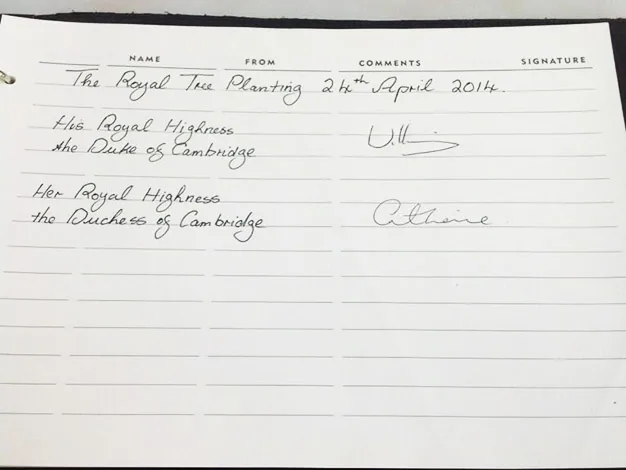 NAME FROM COMMENTS SIGNATURE
The Royal Tree Planting 24th April 2014.
His Royal Highness
the Duke of Cambridge William
Her Royal Highness
the Duchess of Cambridge Catherine